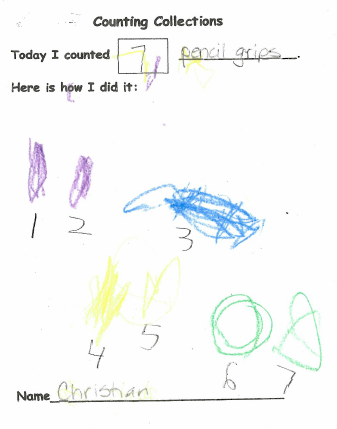 Counting Collections
Today I counted 7 pencil grips.
Here is how I did it:
1 2 3
4 5 6 7
Name Christian